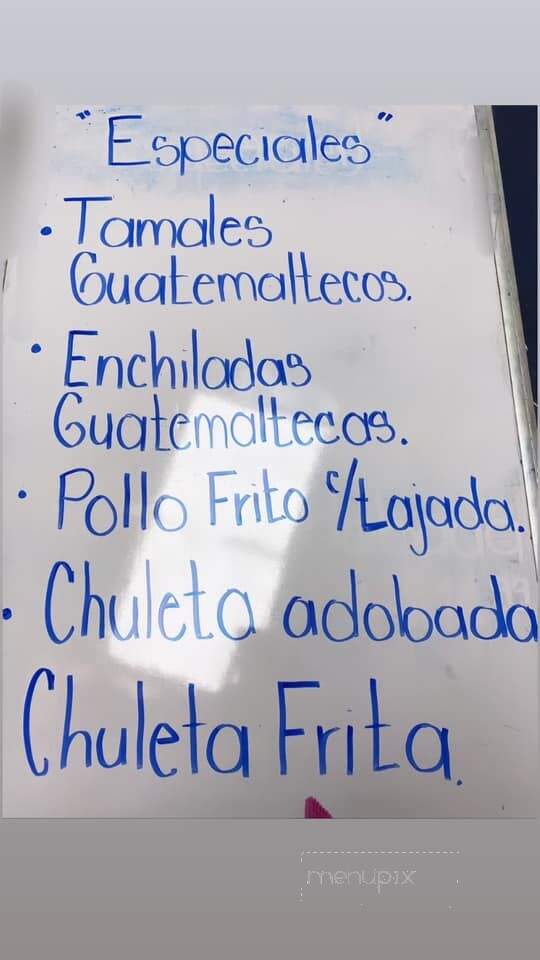 "Especiales"
• Tamales
Guatemaltecos.
• Enchiladas
Guatemaltecas.
• Pollo Frito c/tajada.
• Chuleta adobada
Chuleta Frita.
menupix